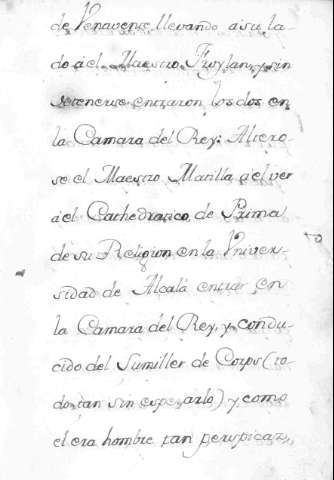 de Venavente, llevando a su la-
do a el Maestro Froylan, y sin
detenerse entraron los dos en
la Camara del Rey: Altero-
se el Maestro Matilla a el ver
a el Cathedratico de Prima
de su Religion en la Vniver-
sidad de Alcalá entrar en
la Camara del Rey, y condu-
cido del Sumiller de Corps (to-
do tan sin esperarlo) y como
el era hombre tan perspicaz,